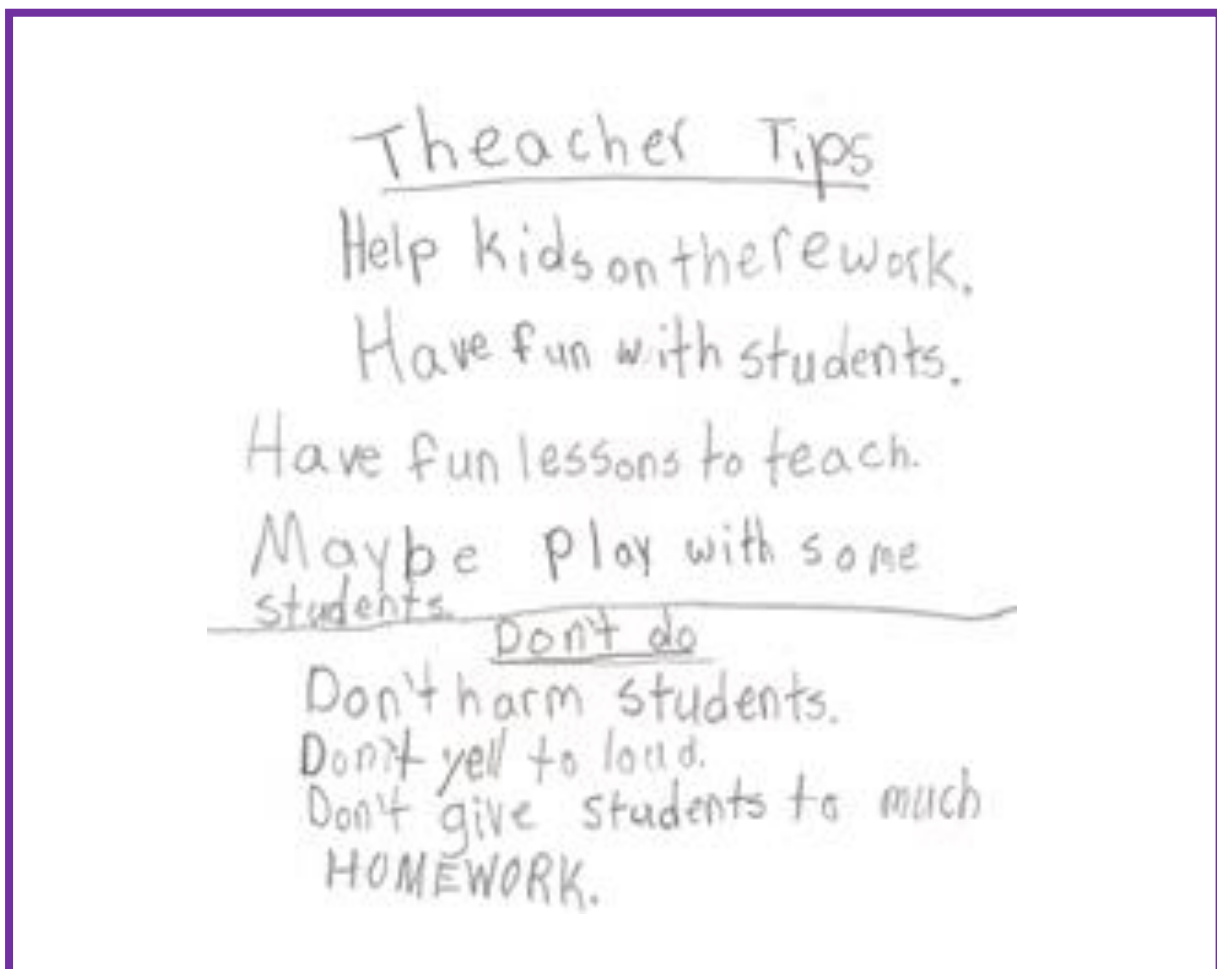 Theacher Tips
Help kids on there work.
Have fun with students.
Have fun lessons to teach.
Maybe play with some
students.
Don't do
Don't harm students.
Don't yell to loud.
Don't give students to much
HOMEWORK.